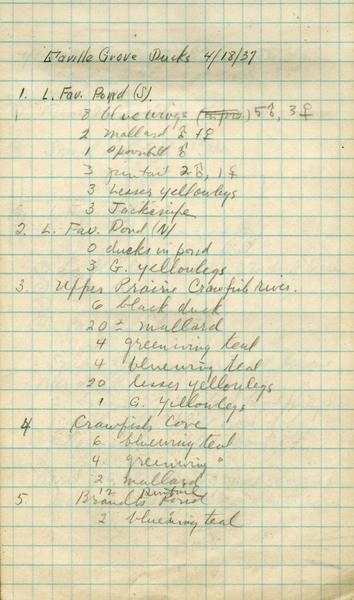 Faville Grove Ducks 4/18/37
1. L. Fav. Pond (S).
8 bluewings 5♂, 3♀
2 mallard ♂ + ♀
1 spoonbill ♂
3 pintail 2♂, 1♀
3 Lesser yellowlegs
3 Jacksnipe
2. L. Fav. Pond (N)
0 ducks in pond
3 G. yellowlegs
3 Upper Prairie Crawfish river.
6 black duck
20 ± mallard
4 greenwing teal
4 bluewing teal
20 lesser yellowlegs
1 G. yellowlegs
4 Crawfish Cove
6 bluewing teal
4. greenwing "
2 mallard
12 pintail
5. Brandts Pond
2 bluewing teal